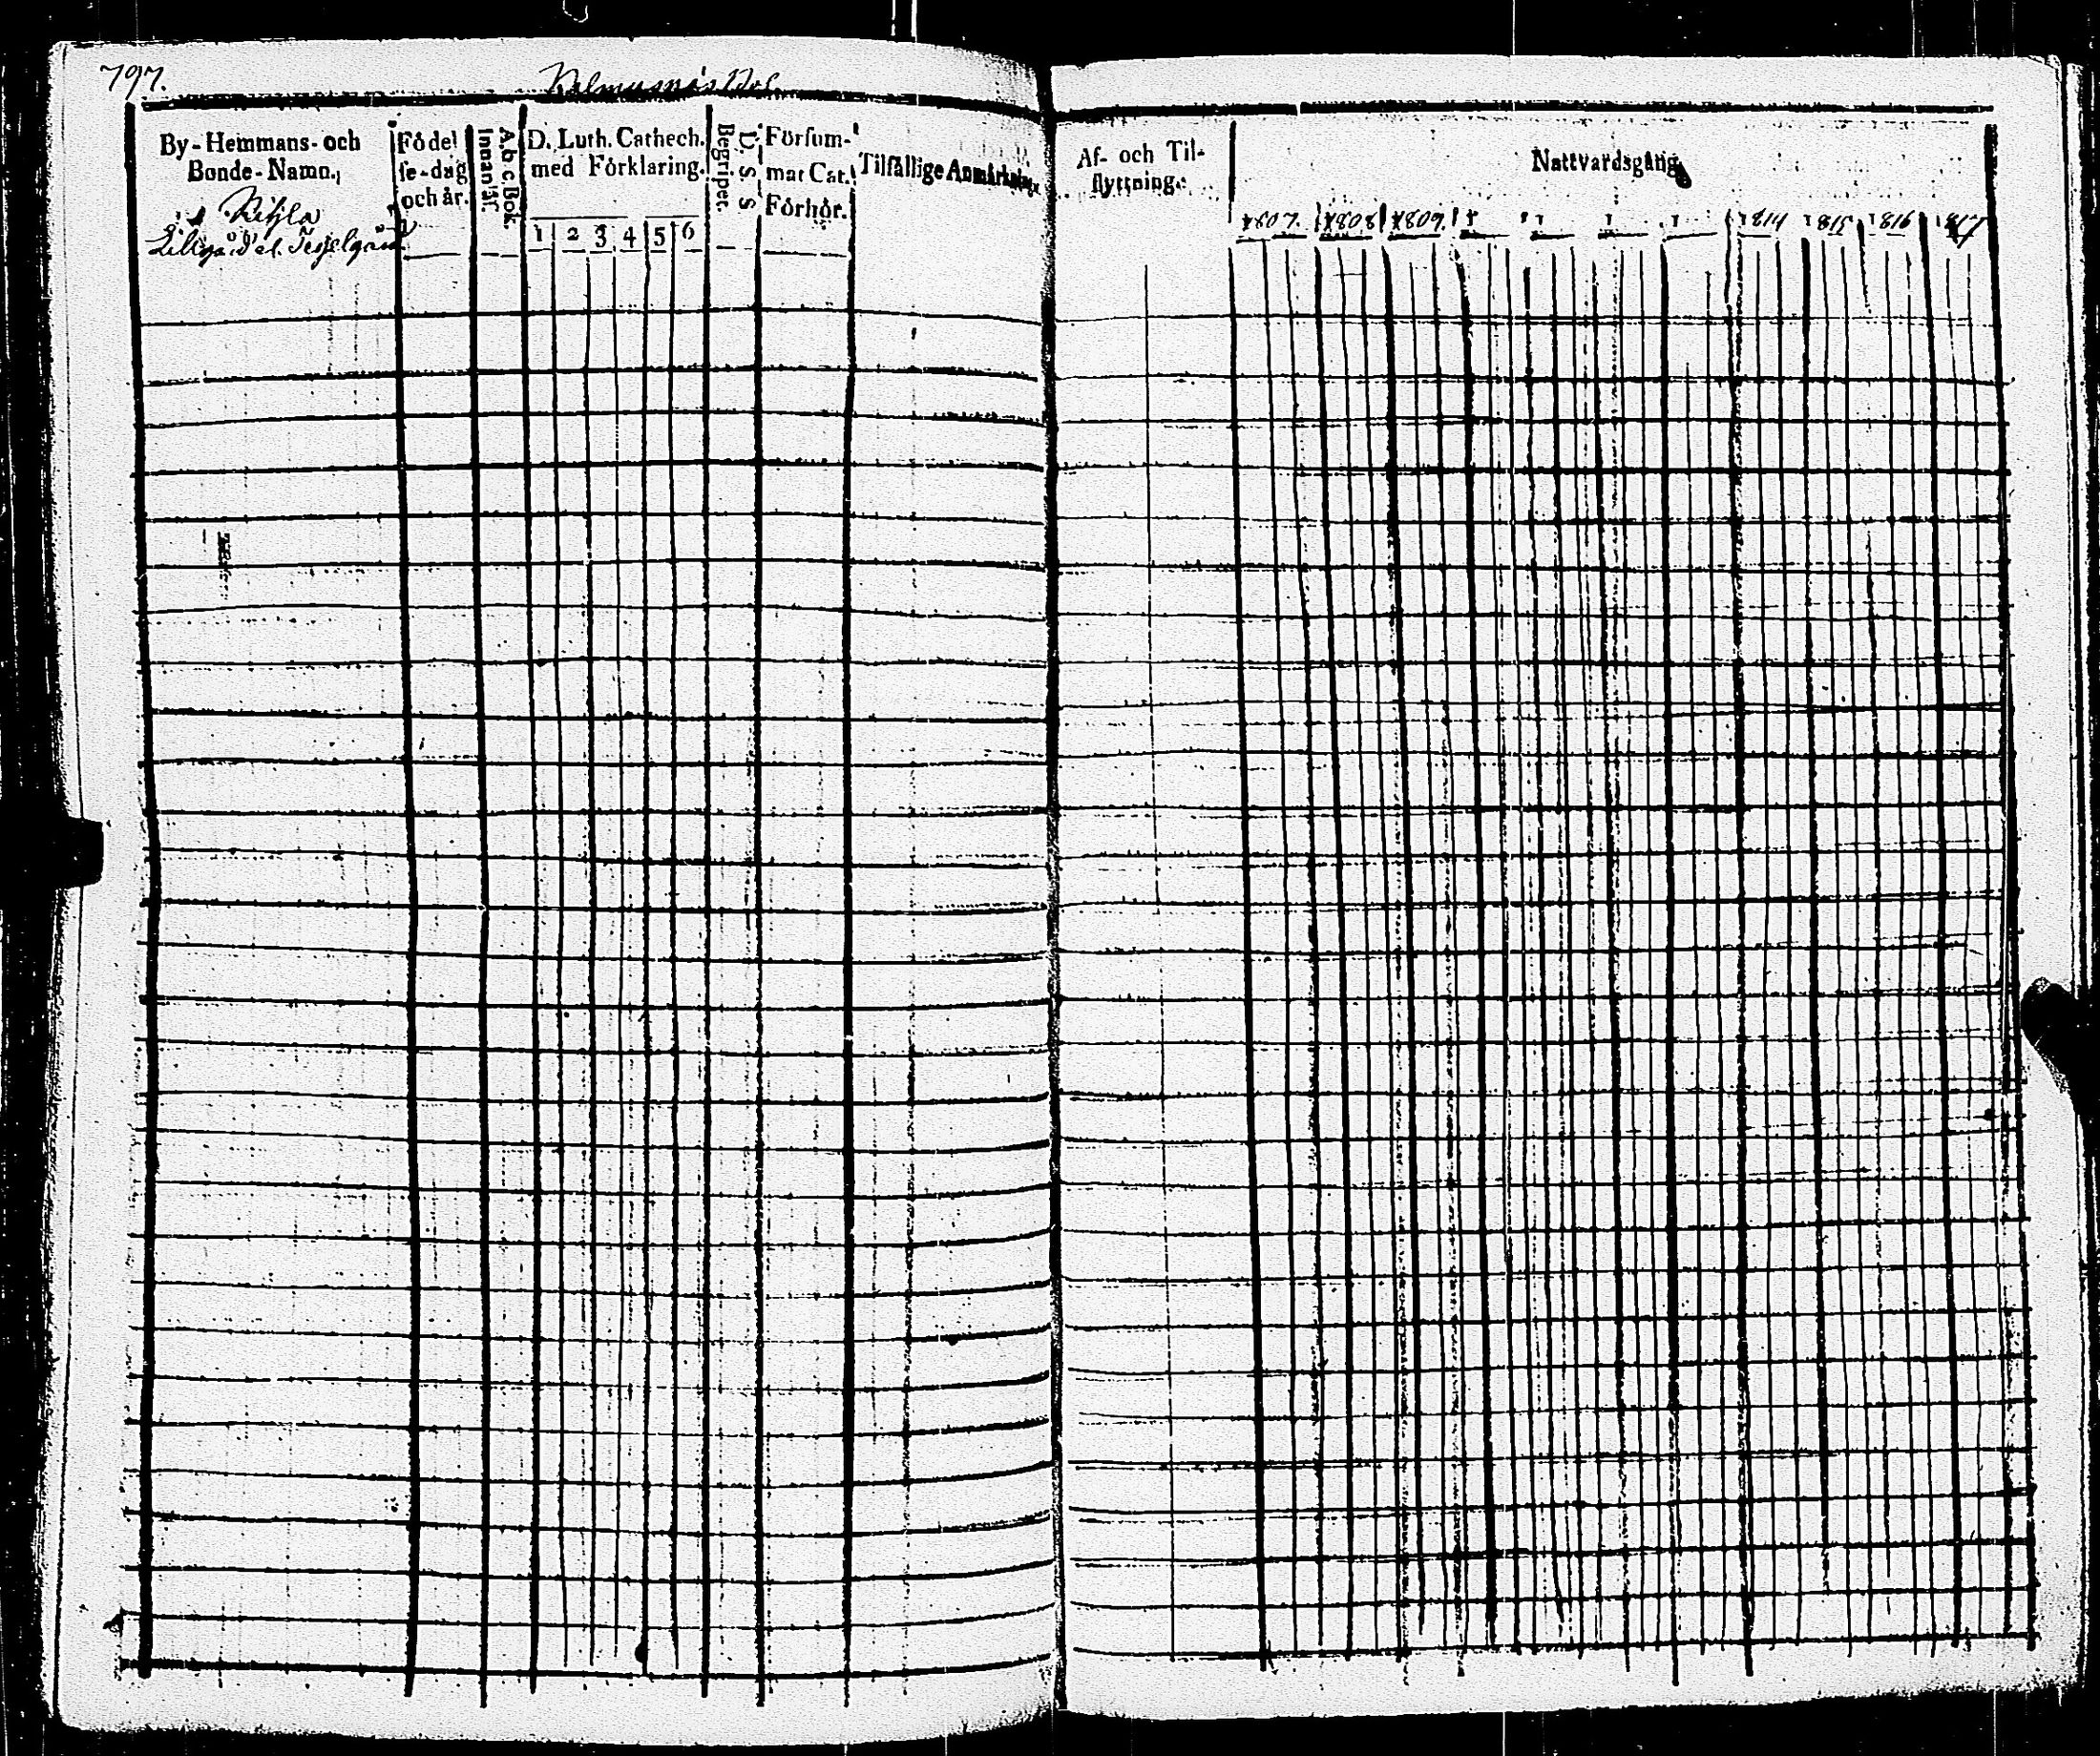 797.
By-Hemmans- och
Bonde-Namn.
Födel
se-dag
och år.
A b c Bok.
Innanlär.
D. Luth. Cathech.
med Förklaring.
1 2 3 4 5 6
D. S. S
Begriper.
Försum-
mat Cat.
Förhör.
Tilfällige Anmärkning.
Af- och Til-
flyttning.
Nattvardsgång
1807. 1808 1809 1814 1815 1816 1817